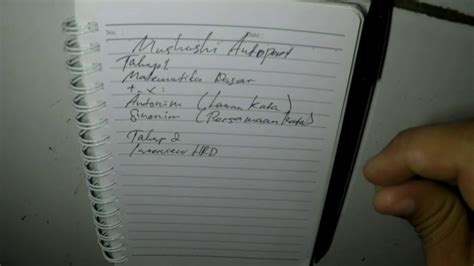 No.
Date
Mushashi Autopart
Tahap 1
Matematika Dasar
+ - × :
Antonim (Lawan Kata)
Sinonim (Persamaan Kata)
Tahap 2
Interview HRD